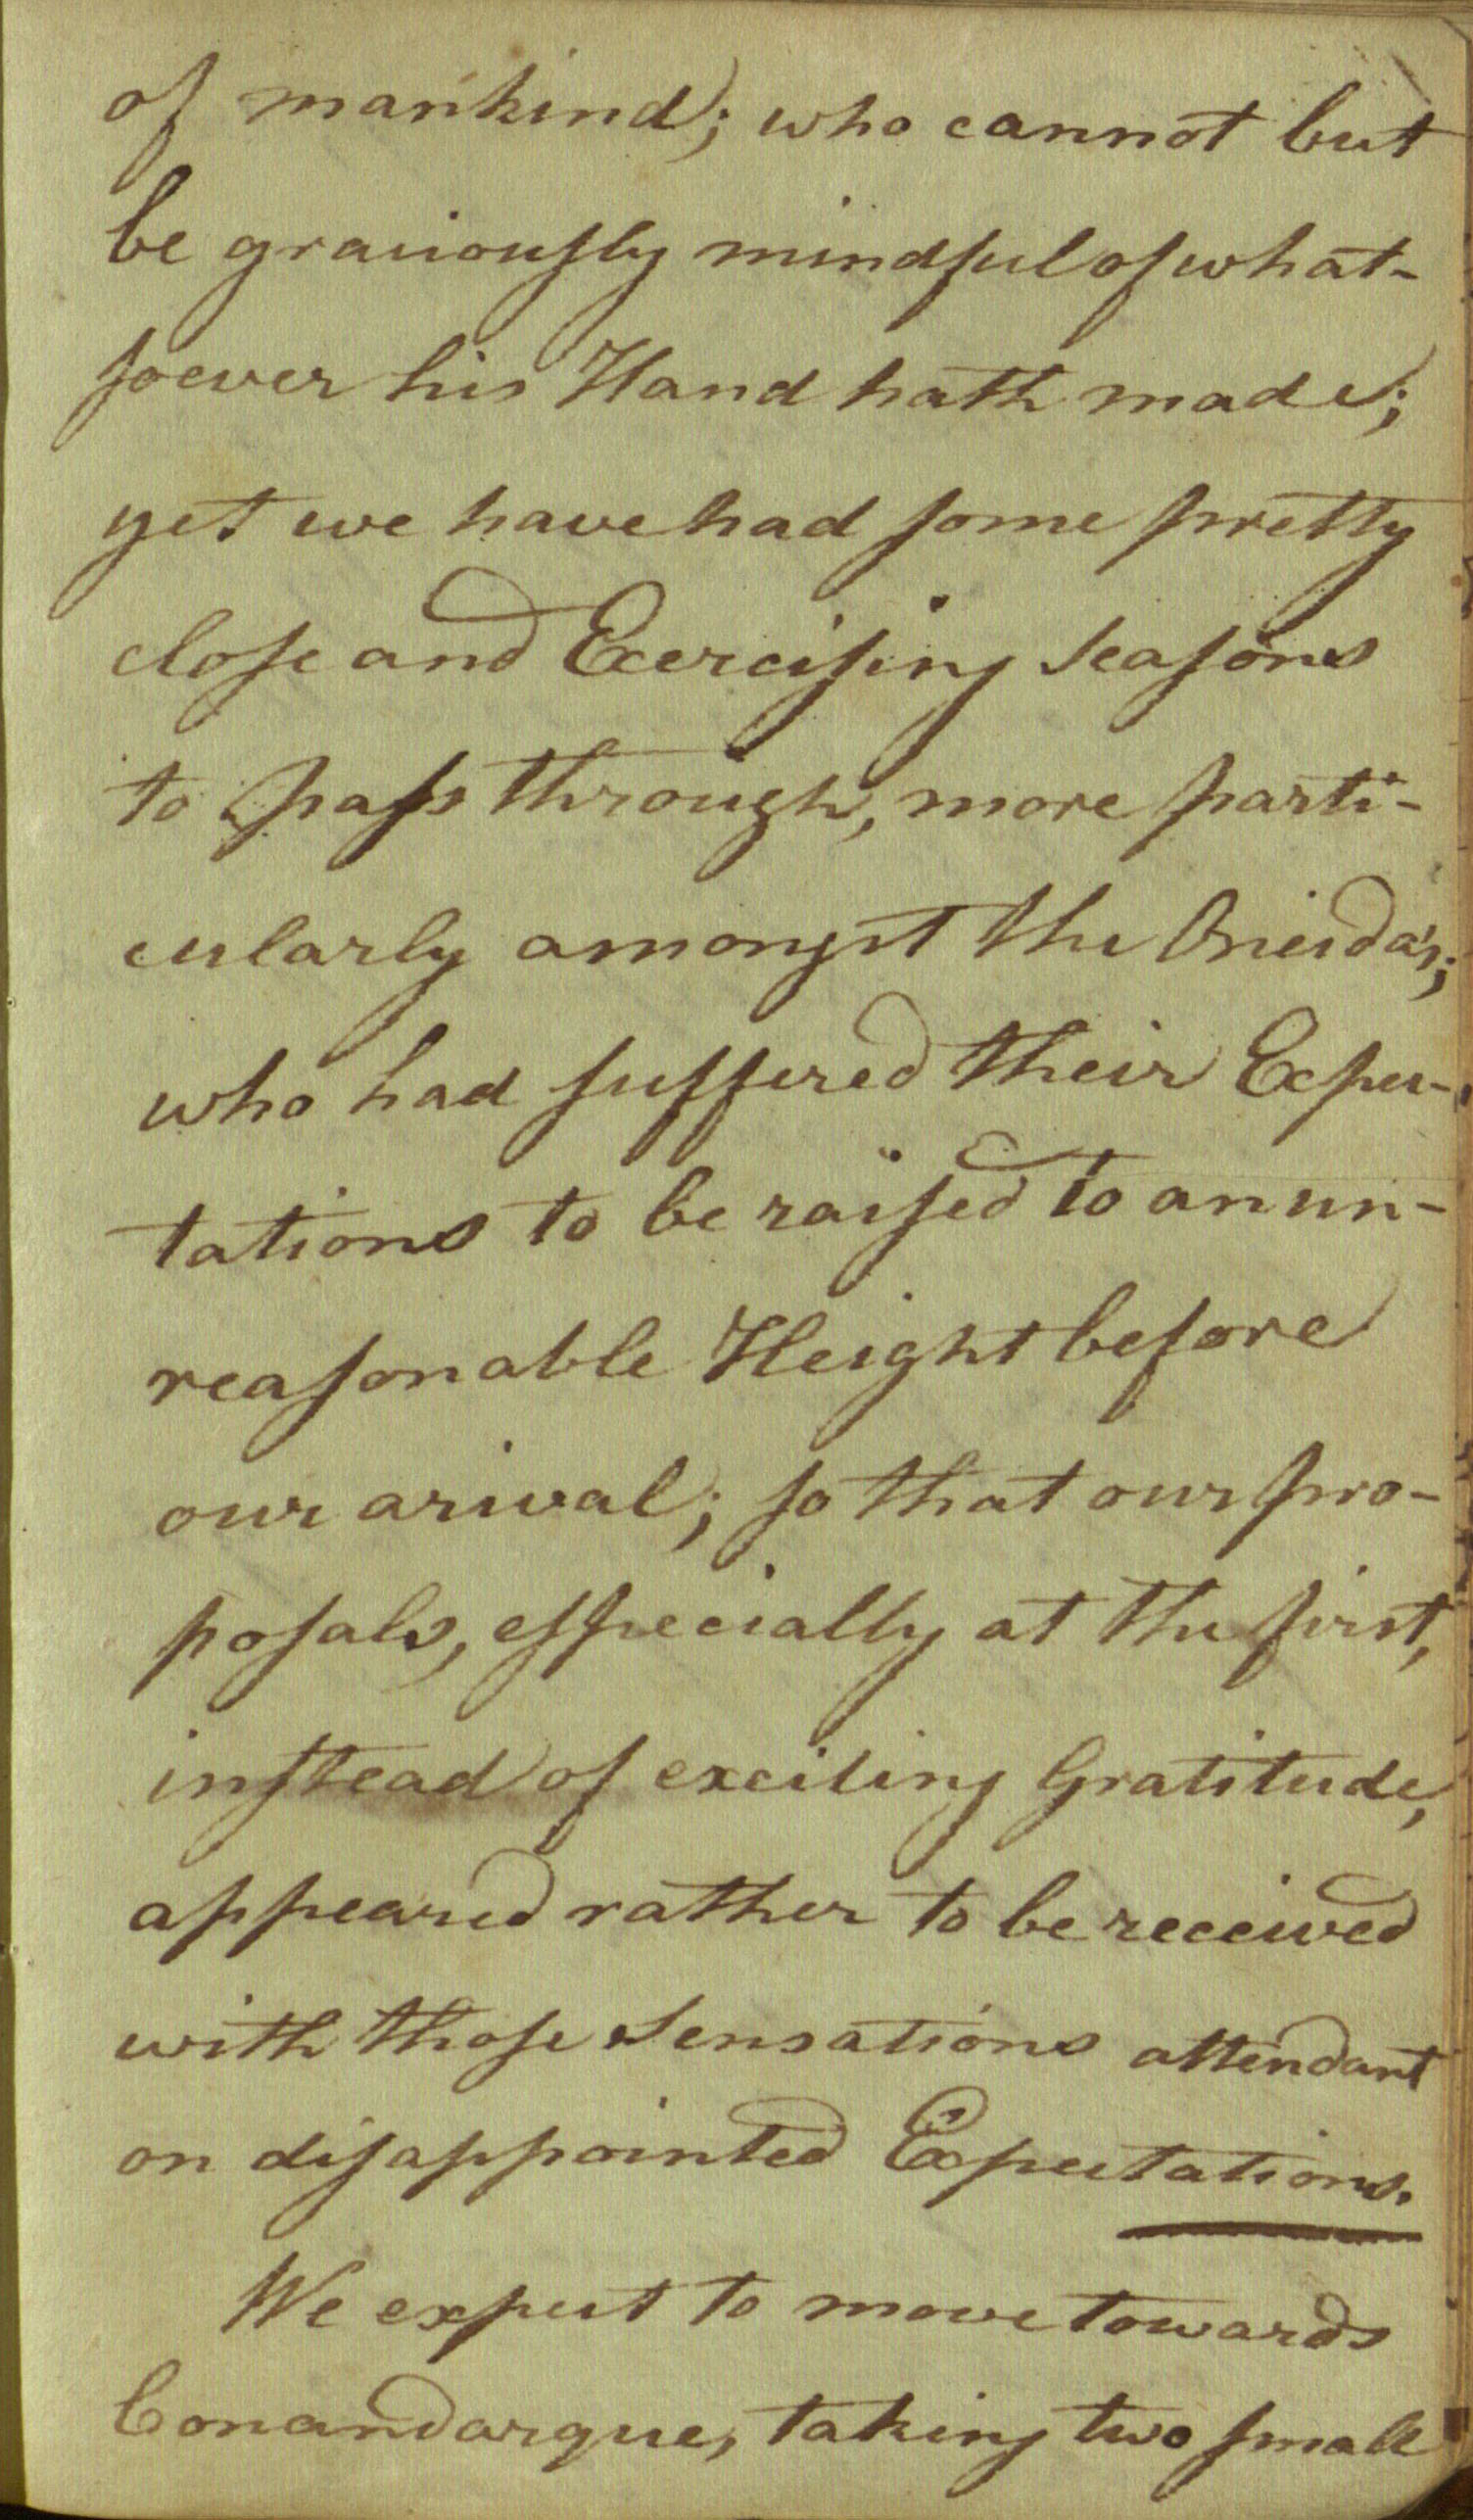 of mankind; who cannot but
be graciously mindful of what-
soever his Hand hath made;
yet we have had some pretty
close and Exercising Seasons
to pass through, more parti-
cularly amongst the Oneida's;
who had suffered their Expec-
tations to be raised to an un-
reasonable Height before
our arival; so that our pro-
posals, especially at the first,
instead of exciting Gratitude,
appeared rather to be received
with those Sensations attendant
on disappointed Expectations.
We expect to move towards
Conandarque, taking two small